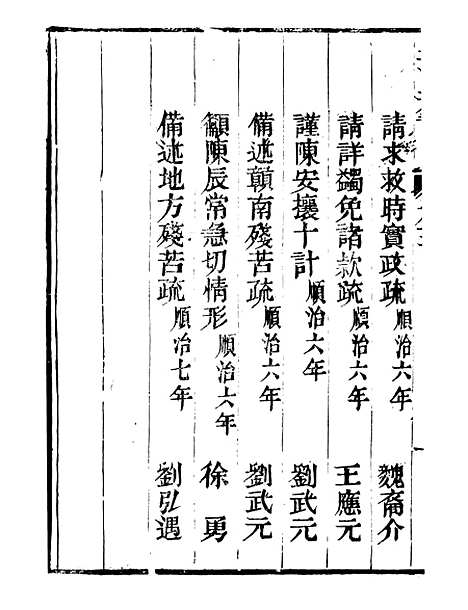 請求救時實政疏 順治六年 魏裔介
請詳蠲免諸款疏 順治六年 王應元
謹陳安攘十計 順治六年 劉武元
備述贛南殘苦疏 順治六年 劉武元
籲陳辰常急切情形 順治六年 徐勇
備述地方殘苦疏 順治七年 劉弘遇